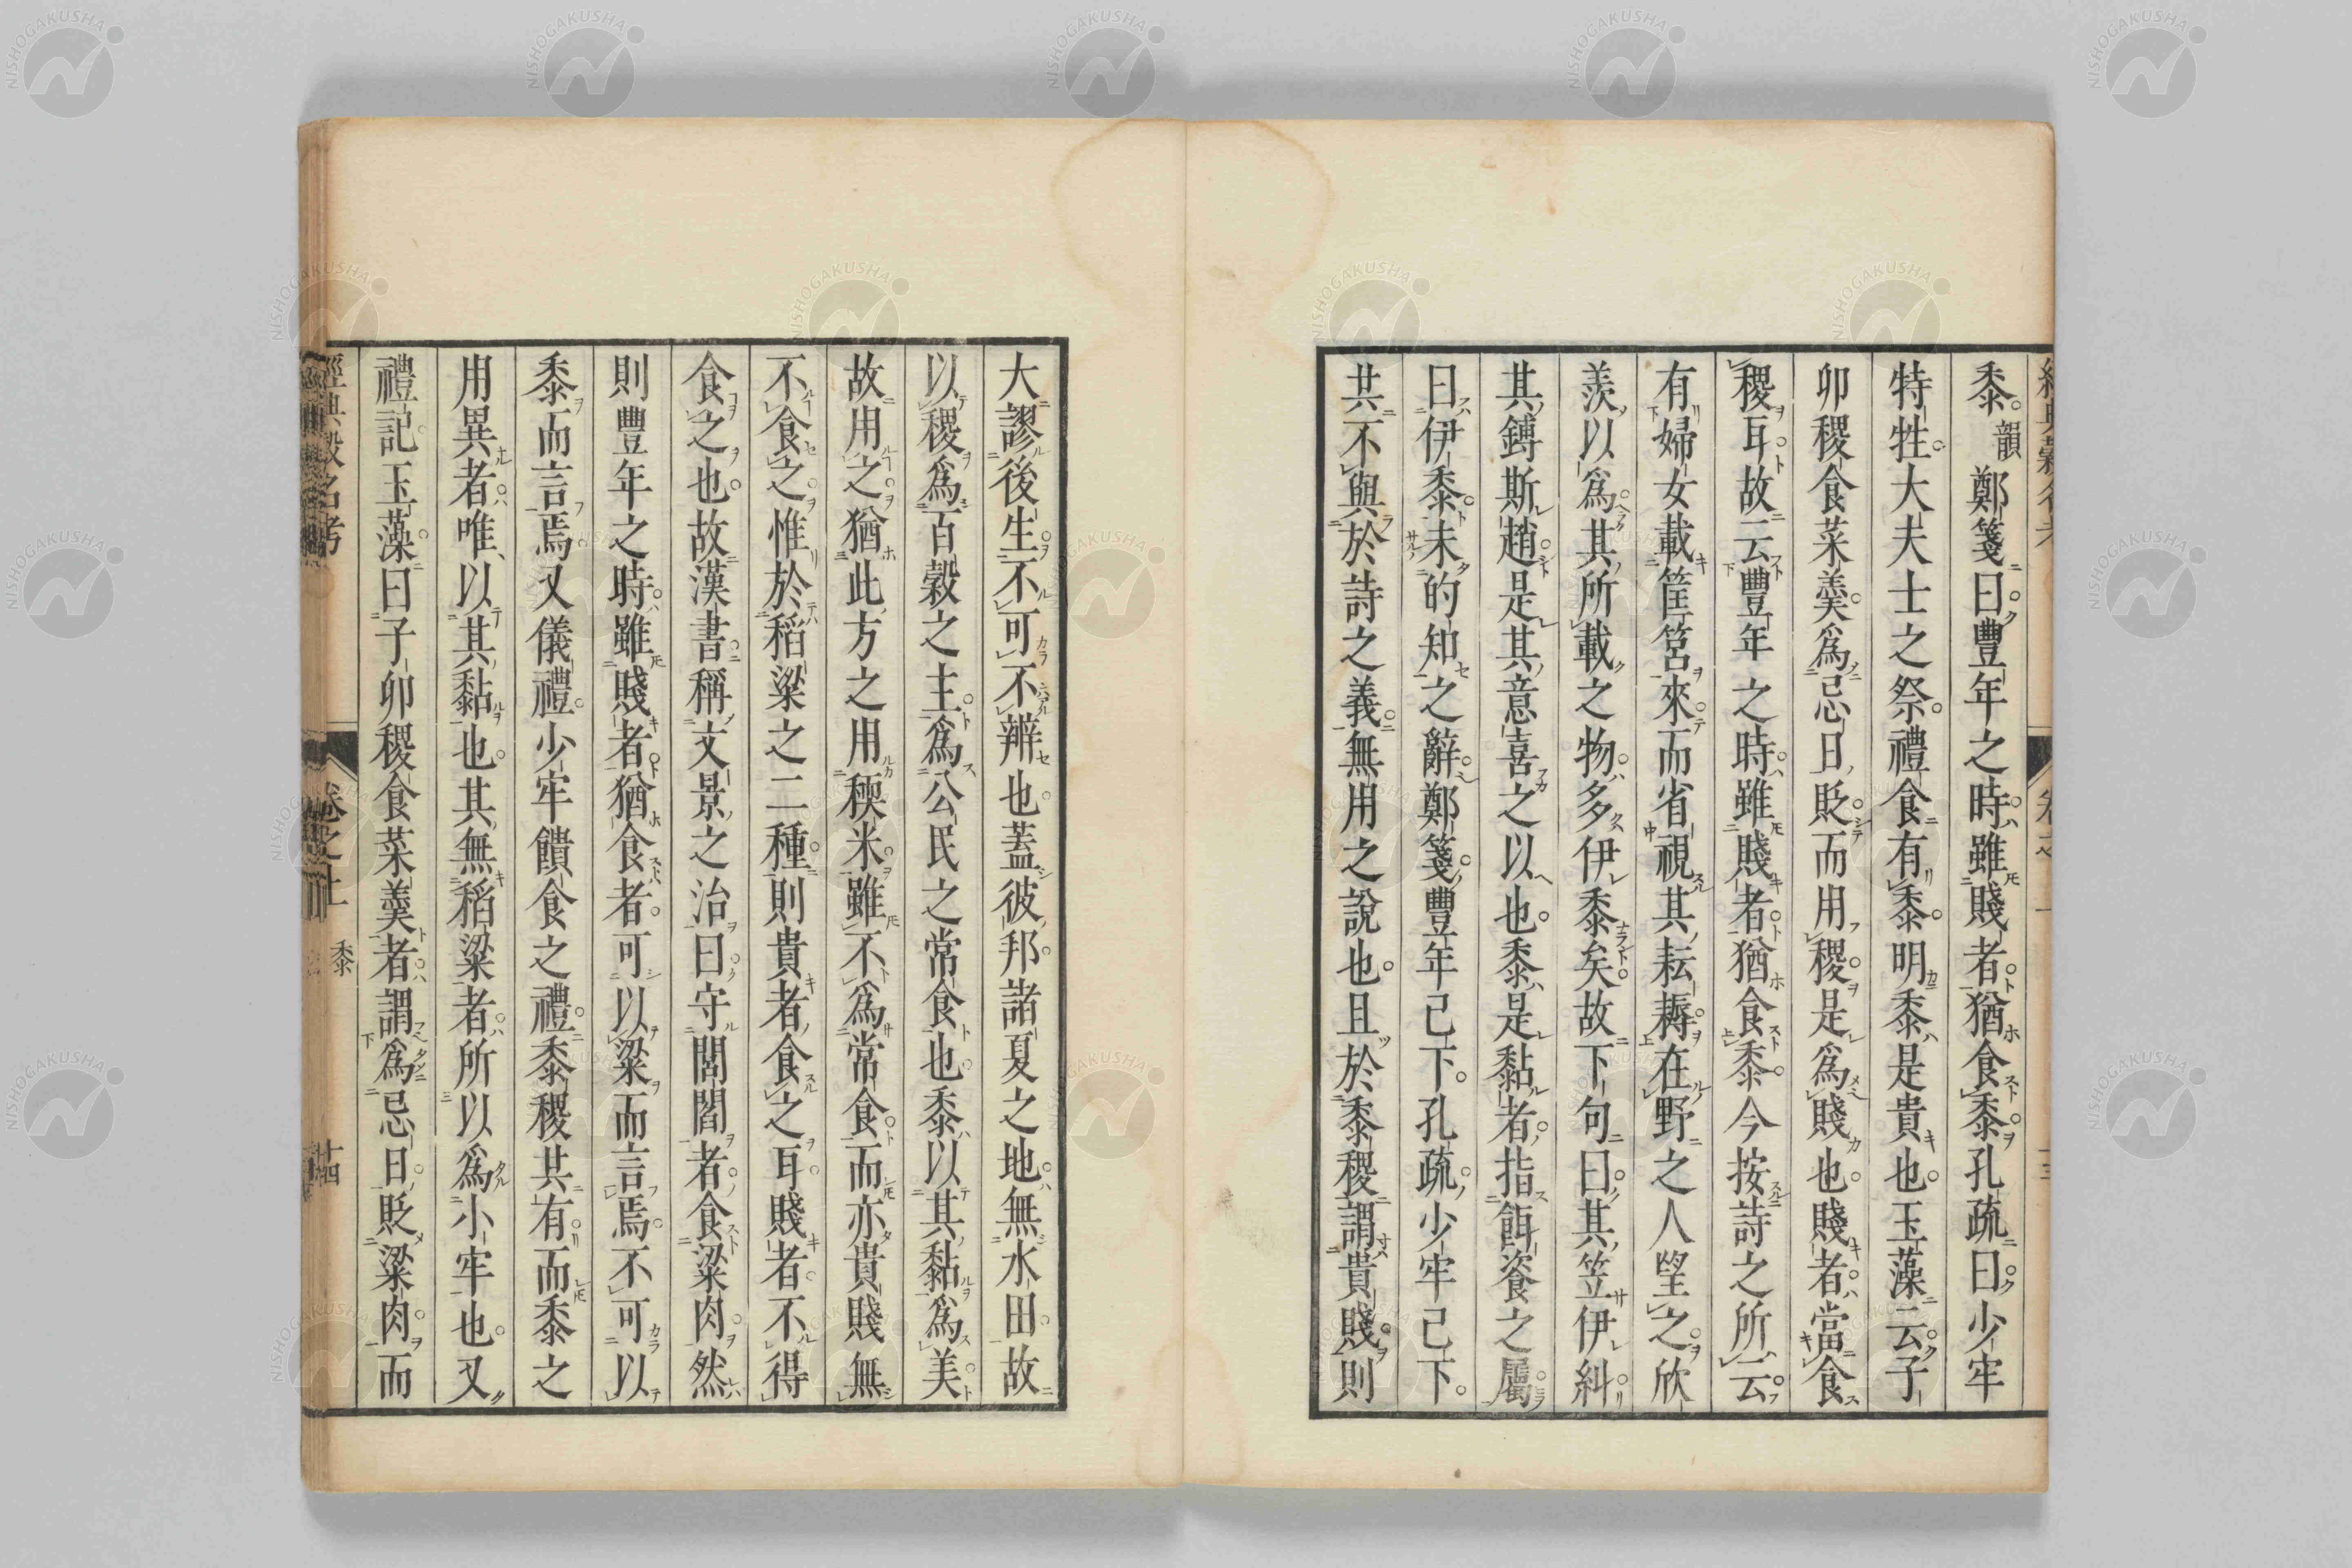 黍韻鄭箋曰豐年之時雖賤者猶食黍孔疏曰少牢
特牲大夫士之祭禮食有黍明黍是貴也玉藻云子
卯稷食菜羹爲忌日貶而用稷是爲賤也賤者當食
稷耳故云豐年之時雖賤者猶食黍今按詩之所云
有婦女載筐筥來而省視其耘耨在野之人望之欣
羨以爲其所載之物多伊黍矣故下句曰其笠伊糾
其鎛斯趙是其意喜之以也黍是黏者指餌餈之屬
曰伊黍未的知之辭鄭箋豐年已下孔疏少牢已下
共不與於詩之義無用之說也且於黍稷謂貴賤則
大謬後生不可不辨也蓋彼邦諸夏之地無水田故
以稷爲百穀之主爲公民之常食也黍以其黏爲美
故用之猶此方之用稬米雖不爲常食而亦貴賤無
不食之惟於稻粱之二種則貴者食之耳賤者不得
食之也故漢書稱文景之治曰守閭閻者食粱肉然
則豐年之時雖賤者猶食者可以粱而言焉不可以
黍而言焉又儀禮少牢饋食之禮黍稷共有而黍之
用異者唯以其黏也其無稻粱者所以爲小牢也又
禮記玉藻曰子卯稷食菜羹者謂爲忌日貶粱肉而
經典穀名考 卷之上 黍 十四